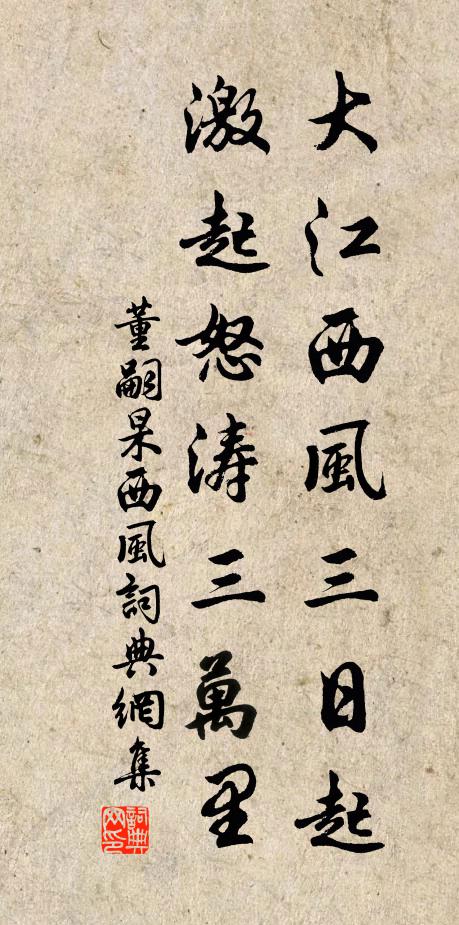 大江西風三日起
激起怒濤三萬里
董嗣杲西風詞典網集
詞典
网印